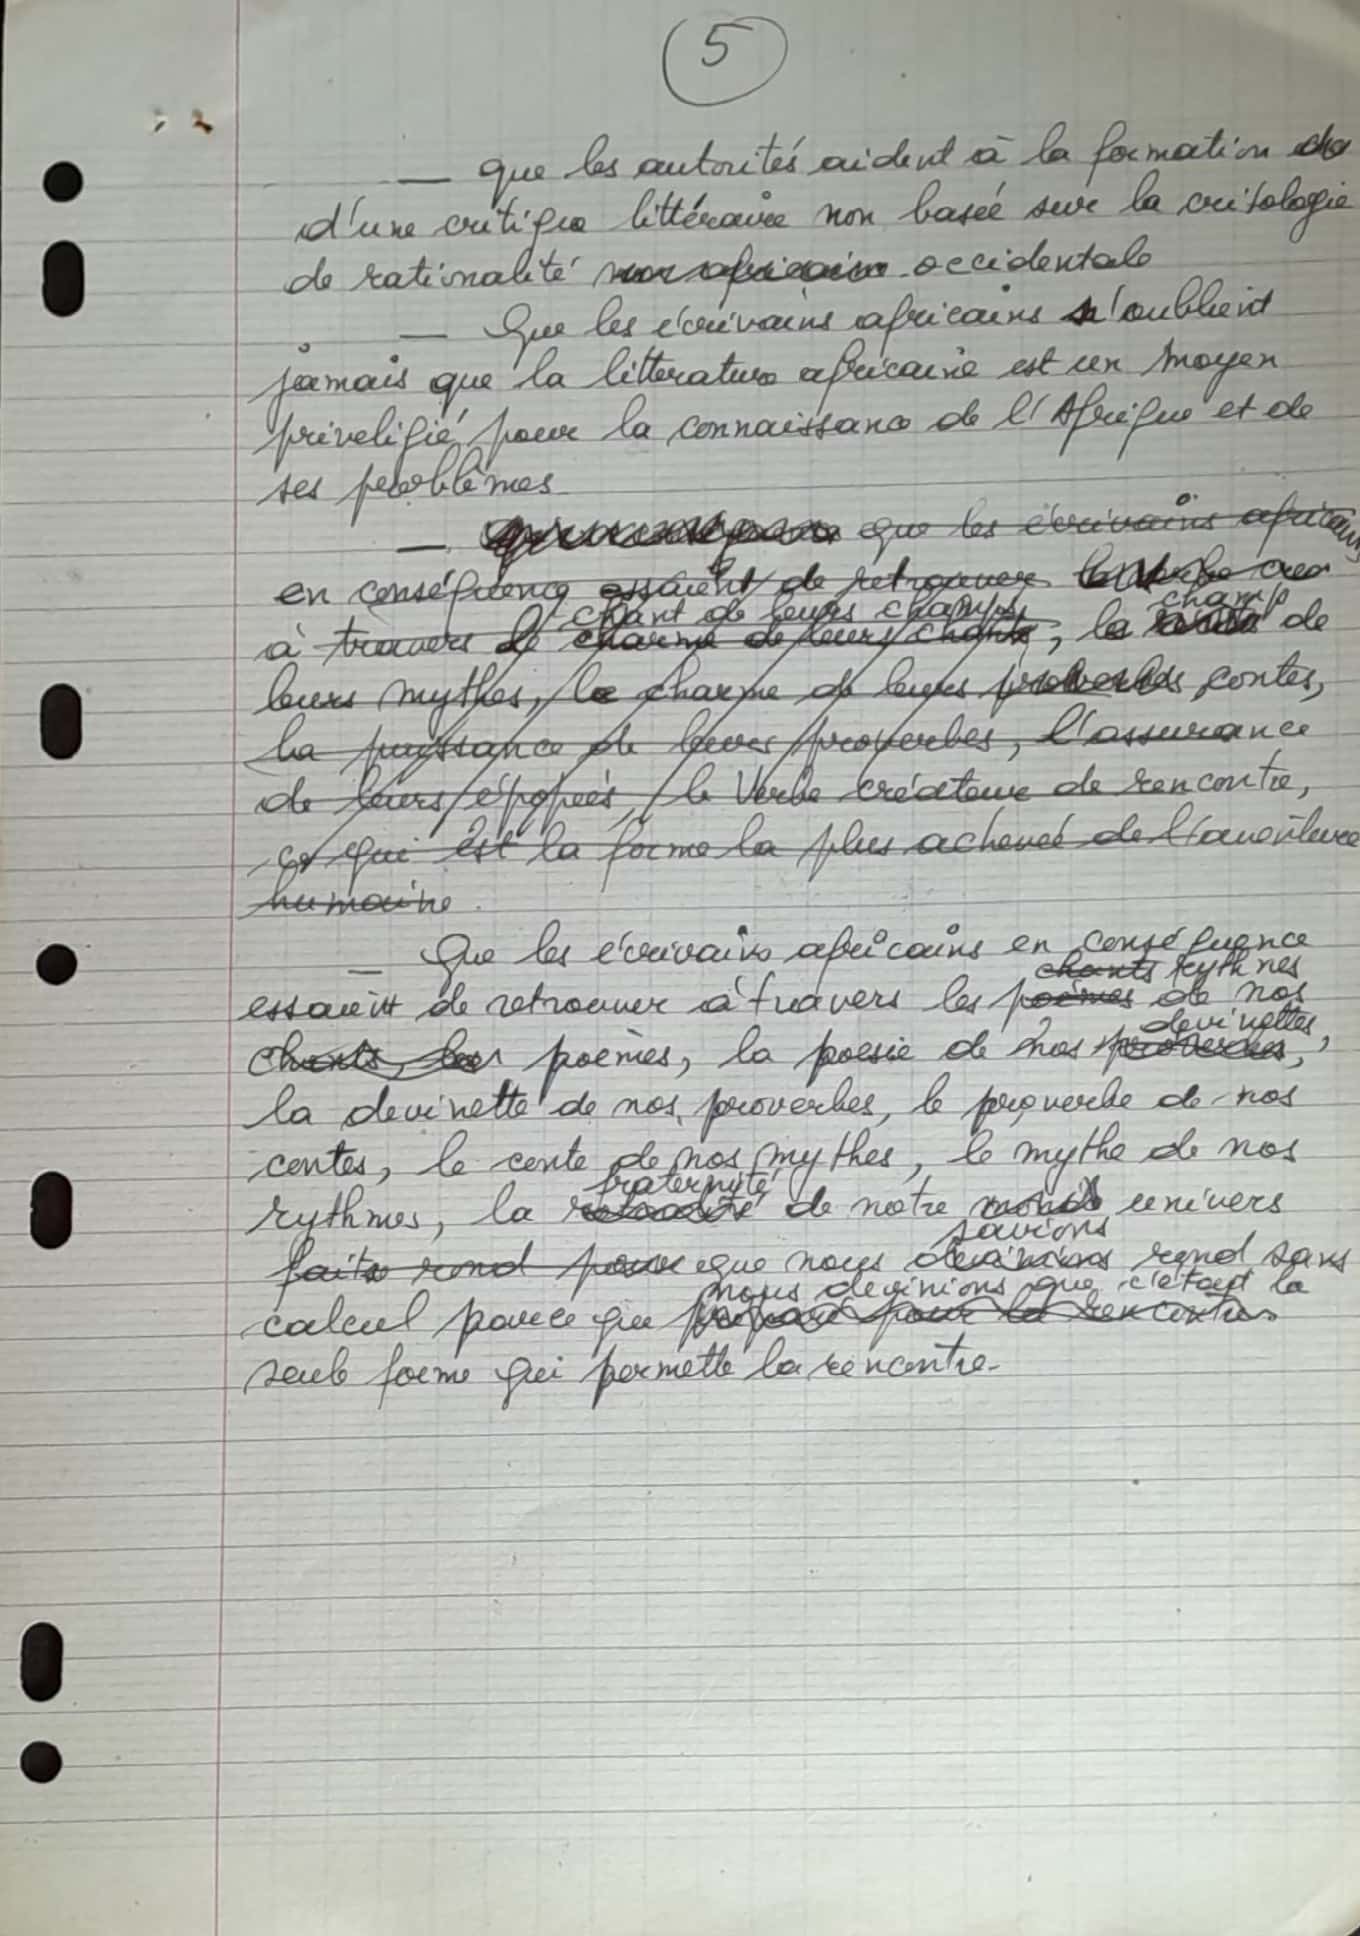 5
— que les autorités aident à la formation
d'une critique littéraire non basée sur la critologie
de rationalité non africaine occidentale
— Que les écrivains africains n'oublient
jamais que la litterature africaine est un moyen
priveligié pour la connaissance de l'Afrique et de
ses problèmes
— que les écrivains africains
en conséquence essaient de retrouver
chant de leurs champs champ
à travers le charme de leurs chants, le de
leurs mythes, le charme de leurs proverbes contes,
la puissance de leurs proverbes, l'assurance
de leurs épopées, le Verbe créateur de rencontre,
ce qui est la forme la plus achevée de
humaine.
— Que les écrivains africains en conséquence
chants rythmes
essaient de retrouver à travers les poèmes de nos
devinettes,
chants, les poèmes, la poesie de nos proverbes,
la devinette de nos proverbes, le proverbe de nos
contes, le conte de nos mythes, le mythe de nos
fraternité
rythmes, la de notre monde univers
savions
faite rond pour que nous devinions rond sans
nous devinions que c'était la
calcul parce que préparé pour la rencontre
seule forme qui permette la rencontre.